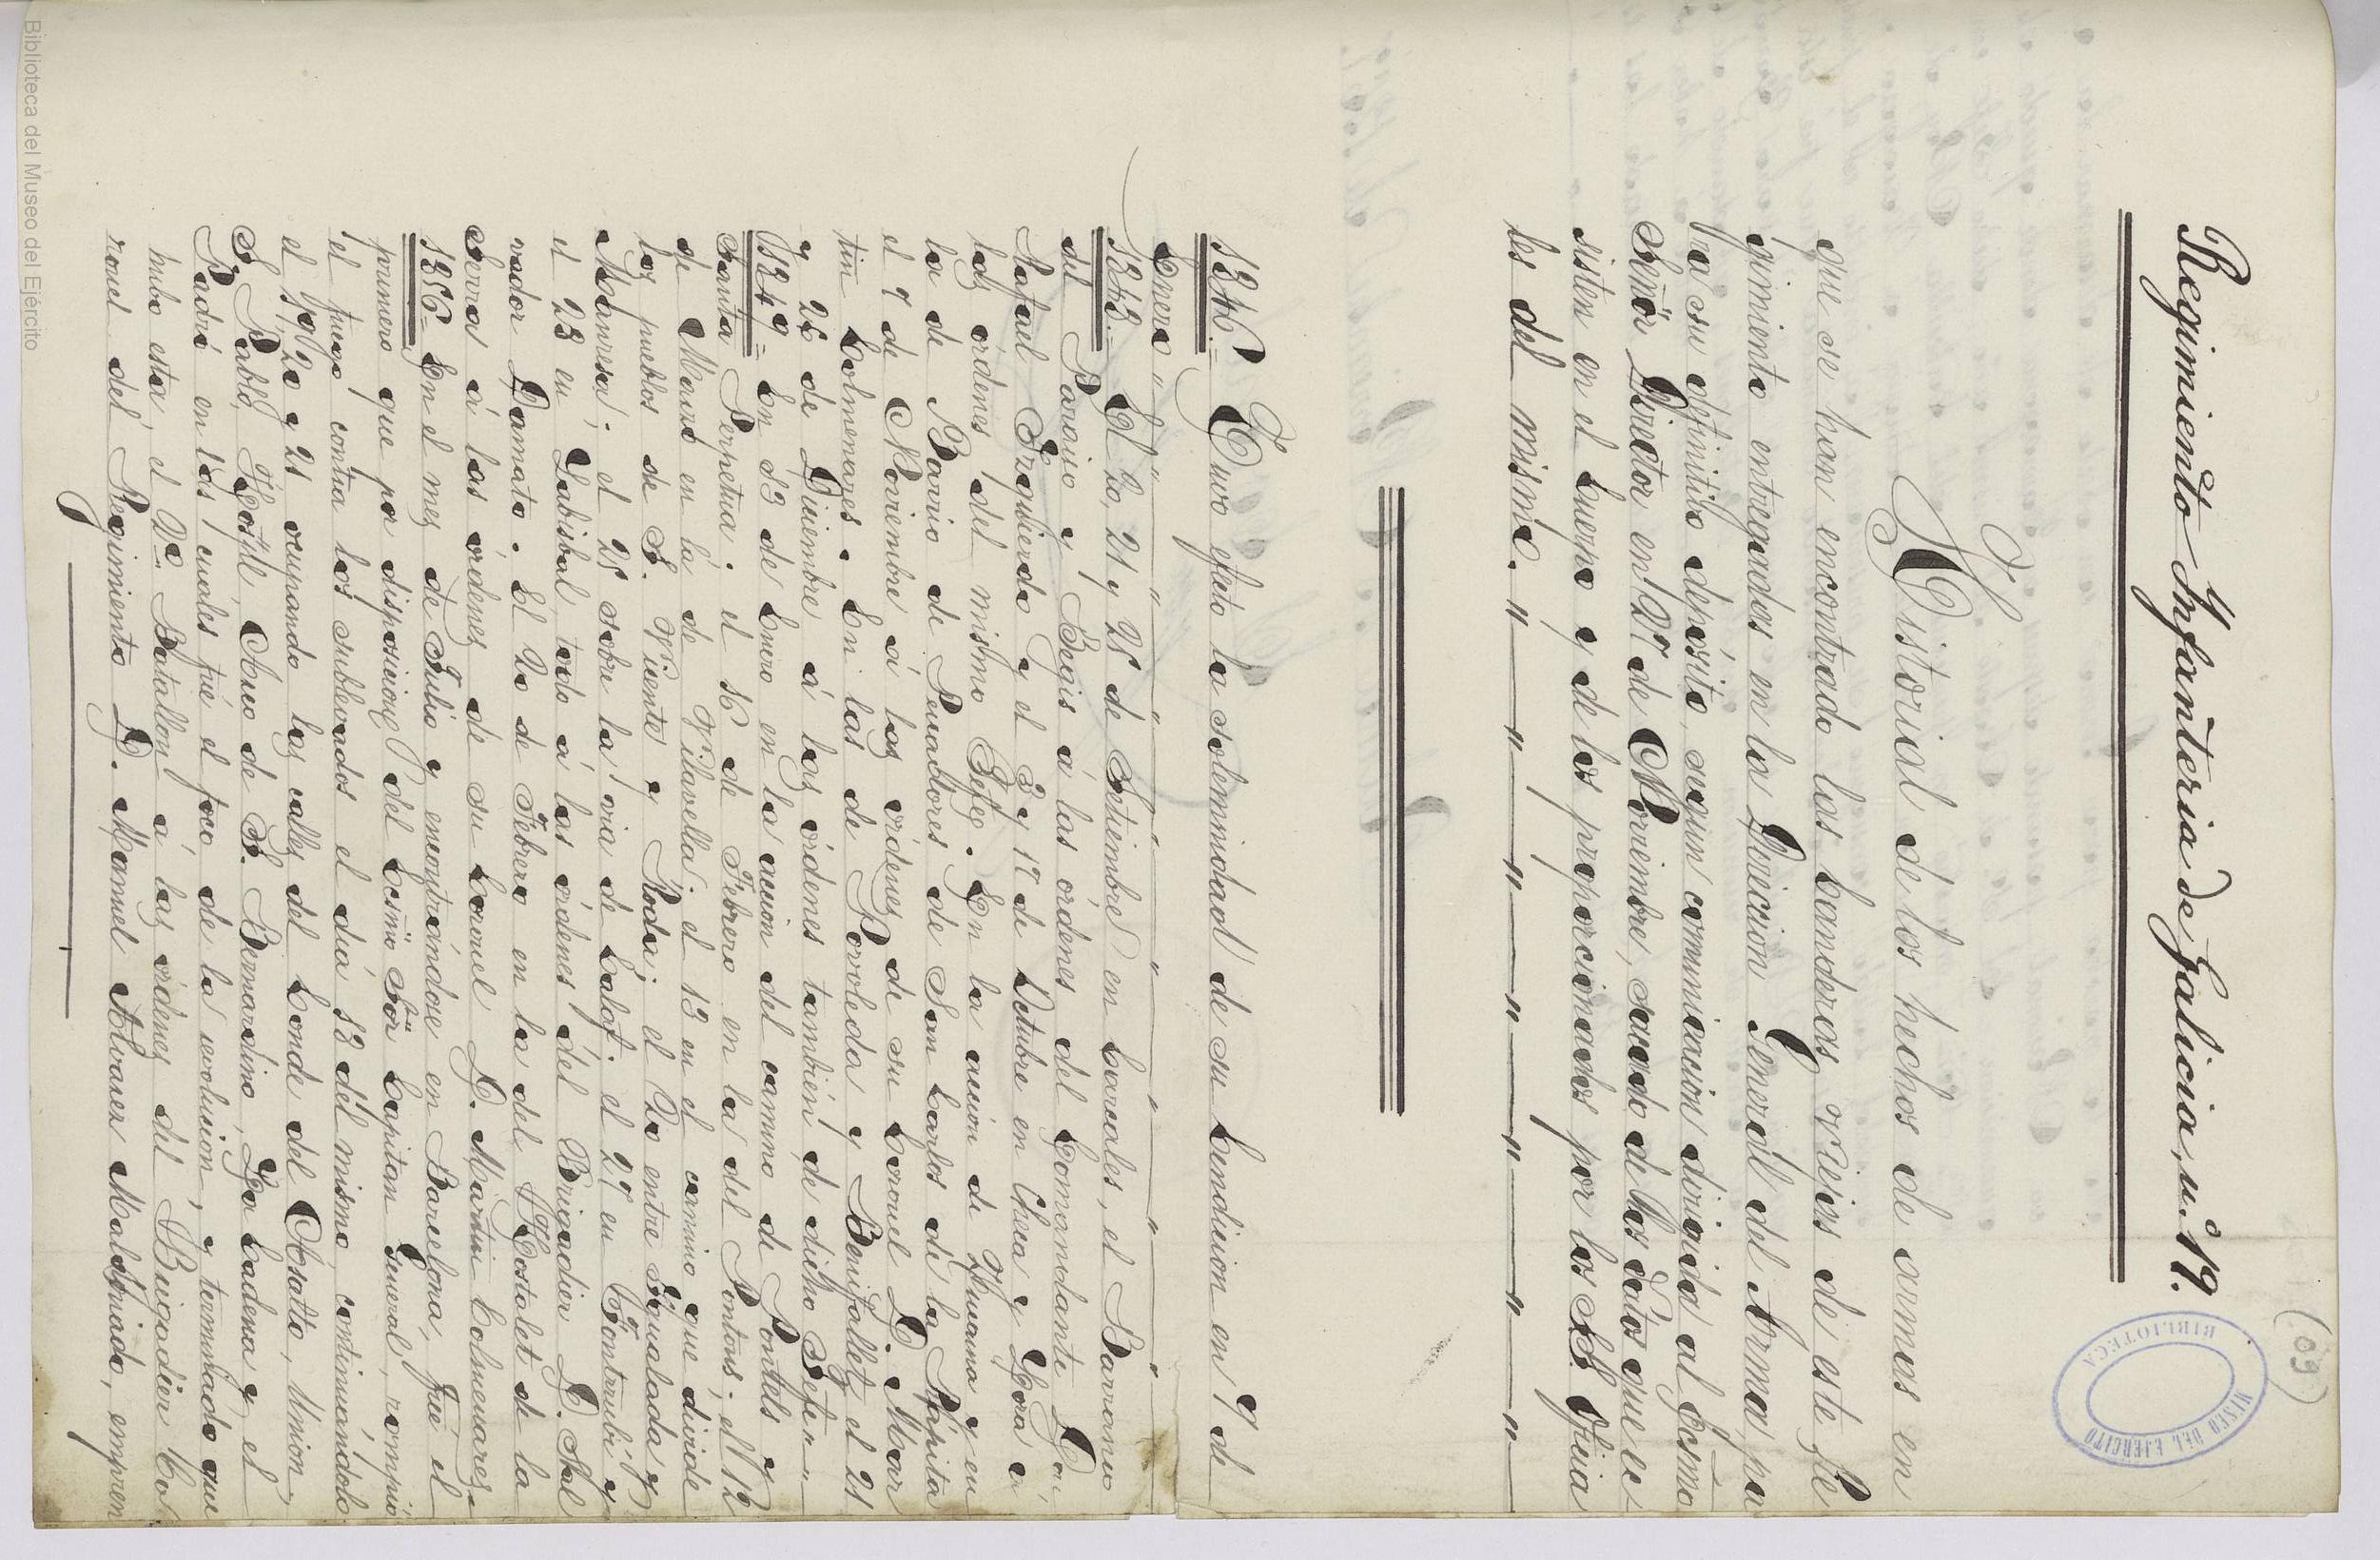 (09)
MUSEO DEL EJERCITO
BIBLIOTECA
Regimiento Infanteria de Galicia, n.º 19.
Historial de los hechos de armas en
que se han encontrado las banderas viejas de este Re
gimiento entregadas en la Direccion General del Arma, pa
ra su definitivo depósito, segun comunicacion dirigida al Ecsmo
Señor Director en 27 de Noviembre, sacado de los datos que ec
sisten en el Cuerpo y de los proporcionados por los SS. Oficia
les del mismo. " — " — " — " — " — " — " — "
1846.= Tuvo efecto la solemnidad de su bendicion en 7 de
Enero " — " — " — " — " — " — " — "
1848.= El 20, 21 y 25 de Setiembre en Carcales, el Barranco
del Parajio y Begis á las ordenes del Comandante D.
Rafael Izquierdo y el 3 y 17 de Octubre en Chera y Lora á
las órdenes del mismo Gefe. En la accion de y en
la de Barrio de Pescadores de San Carlos de la Rápita
el 7 de Noviembre á las órdenes de su Coronel D. Mar
tin Colmenares. En las de Povoleda y Benifallet el 21
y 26 de Diciembre á las ordenes tambien de dicho Gefe "
1849 = En 13 de Enero en la accion del camino de Pontils y
Santa Perpetua. el 16 de Febrero en la del Pontons; el 12
de Marzo en la de Vilavella; el 13 en el camino que divide
los pueblos de S. Vicente y Roda; el 20 entre Igualada y
Manresa; el 25 sobre la via de Calaf; el 27 en y
el 23 en Labisbal, todo á las órdenes del Brigadier D. Sal
vador Damato. El 20 de Febrero en la del Hostalet de la
Serras á las ordenes de su Coronel D. Martin Colmenares.
1856= En el mes de Julio y encontrándose en Barcelona, fué el
primero que por disposicion del Ecsmo Sor Capitan General, rompió
el fuego contra los sublevados el dia 18 del mismo continuándolo
el 19, 20 y 21 ocupando las calles del Conde del Asalto, Union,
S. Pablo, Hospl, Arco de S. Bernardino, La Cadena y el
Padró en las cuales fué el foco de la revolucion, y terminado que
hubo esta, el 2º Batallon á las ordenes del Brigadier Co
ronel del Regimiento D. Manuel Alvarez Maldonado, empren
Biblioteca del Museo del Ejército